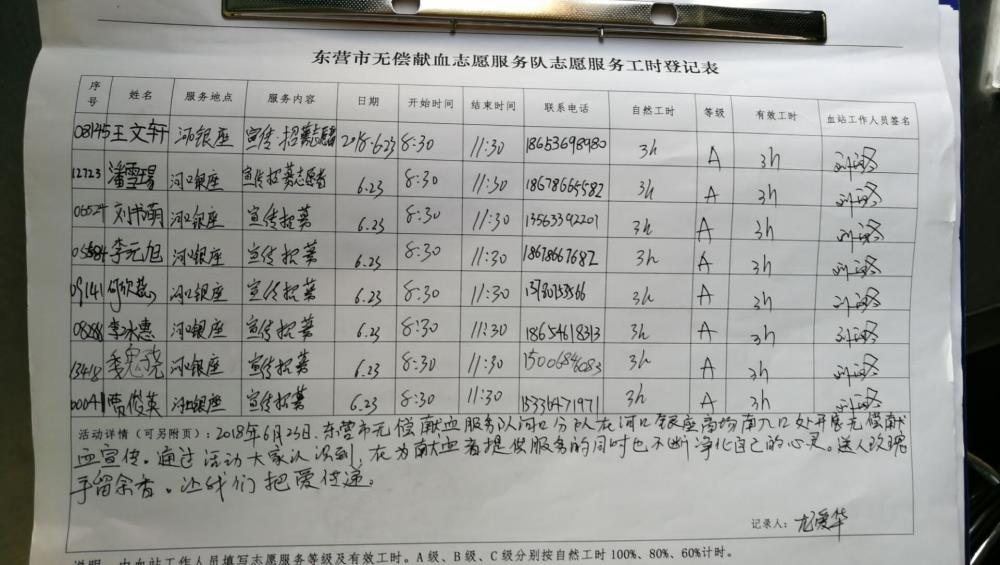 东营市无偿献血志愿服务队志愿服务工时登记表
序号 姓名 服务地点 服务内容 日期 开始时间 结束时间 联系电话 自然工时 等级 有效工时 血站工作人员签名
08145 王文轩 河口银座 宣传招募志愿者 2018.6.23 8:30 11:30 18653698980 3h A 3h
12723 潘雪瑒 河口银座 宣传招募志愿者 6.23 8:30 11:30 18678665582 3h A 3h
06524 刘书萌 河口银座 宣传招募 6.23 8:30 11:30 13563392201 3h A 3h
李元旭 河口银座 宣传招募 6.23 8:30 11:30 18678667682 3h A 3h
09141 河口银座 宣传招募 6.23 8:30 11:30 3h A 3h
08288 李冰惠 河口银座 宣传招募 6.23 8:30 11:30 18654618313 3h A 3h
13418 河口银座 宣传招募 6.23 8:30 11:30 15006846083 3h A 3h
00041 贾俊英 河口银座 宣传招募 6.23 8:30 11:30 3h A 3h
活动详情(可另附页):2018年6月23日.东营市无偿献血服务队河口分队在河口银座商场南入口处开展无偿献
血宣传。通过活动大家认识到,在为献血者提供服务的同时也不断净化自己的心灵。送人玫瑰
手留余香。让我们把爱传递。
记录人: 尤爱华
说明 由血站工作人员填写志愿服务等级及有效工时。A级、B级、C级分别按自然工时100%、80%、60%计时。